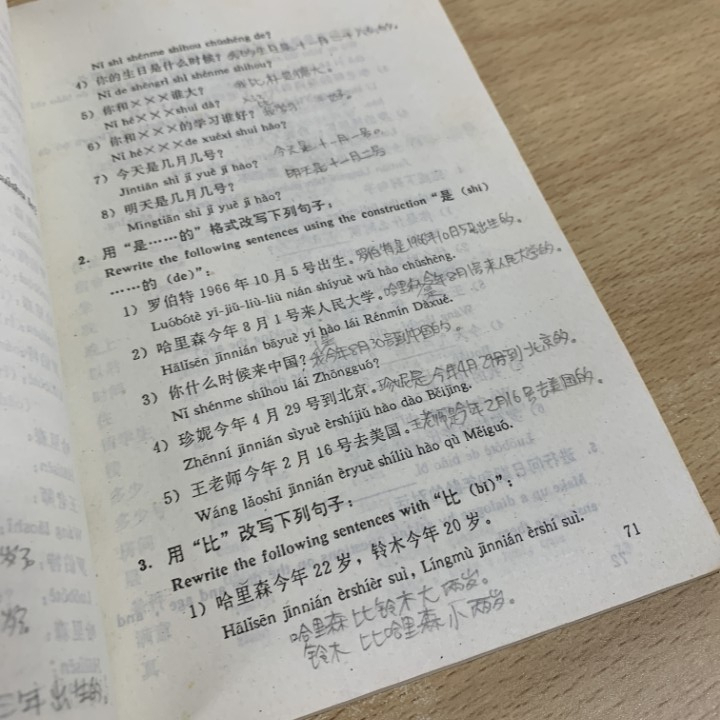 Nǐ shì shénme shíhou chūshēng de?
4) 你的生日是什么时候? 我的生日是十一月
Nǐ de shēngrì shì shénme shíhou?
5) 你和×××谁大? 我比朴
Nǐ hé×××shuí dà?
6) 你和×××的学习谁好?
Nǐ hé×××de xuéxí shuí hǎo?
7) 今天是几月几号? 今天是十一月一号。
Jīntiān shì jǐ yuè jǐ hào?
8) 明天是几月几号? 明天是十一月二号
Míngtiān shì jǐ yuè jǐ hào?
2. 用“是……的”格式改写下列句子:
Rewrite the following sentences using the construction“是(shì)
……的(de)”:
1) 罗伯特1966年10月5号出生。罗伯特是1966年10月5号出生的。
Luóbótè yī-jiǔ-liù-liù nián shíyuè wǔ hào chūshēng.
2) 哈里森今年8月1号来人民大学。哈里森今年是8月1号来人民大学的。
Hālǐsēn jīnnián bāyuè yī hào lái Rénmín Dàxué.
3) 你什么时候来中国? 我是今年8月30号到中国的。
Nǐ shénme shíhou lái Zhōngguó?
4) 珍妮今年4月29号到北京。珍妮是今年4月29号到北京的。
Zhēnní jīnnián sìyuè èrshíjiǔ hào dào Běijīng.
5) 王老师今年2月16号去美国。王老师是今年2月16号去美国的。
Wáng lǎoshī jīnnián èryuè shíliù hào qù Měiguó.
3. 用“比”改写下列句子:
Rewrite the following sentences with“比(bǐ)”:
1) 哈里森今年22岁,铃木今年20岁。
Hālǐsēn jīnnián èrshièr suì, Língmù jīnnián èrshí suì.
哈里森比铃木大两岁。
铃木比哈里森小两岁。
71